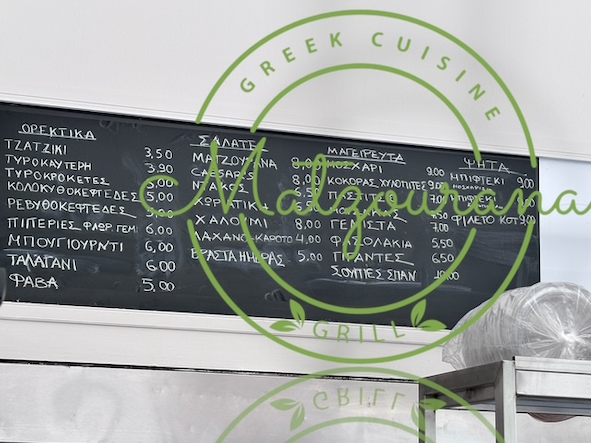 GREEK CUISINE
Matzourana
GRILL
ΟΡΕΚΤΙΚΑ
ΤΖΑΤΖΙΚΙ 3,50
ΤΥΡΟΚΑΥΤΕΡΗ 3,90
ΤΥΡΟΚΡΟΚΕΤΕΣ 6,00
ΚΟΛΟΚΥΘΟΚΕΦΤΕΔΕΣ 5,00
ΡΕΒΥΘΟΚΕΦΤΕΔΕΣ 5,00
ΠΙΠΕΡΙΕΣ ΦΛΩΡ. ΓΕΜ. 6,00
ΜΠΟΥΓΙΟΥΡΝΤΙ 6,00
ΤΑΛΑΓΑΝΙ 6,00
ΦΑΒΑ 5,00
ΣΑΛΑΤΕΣ
ΜΑΤΖΟΥΡΑΝΑ 8,00
CAESARS
ΝΤΑΚΟΣ
ΧΩΡΙΑΤΙΚΗ
ΧΑΛΟΥΜΙ 8,00
ΛΑΧΑΝΟ-ΚΑΡΟΤΟ 4,00
ΒΡΑΣΤΑ ΗΜΕΡΑΣ 5,00
ΜΑΓΕΙΡΕΥΤΑ
ΜΟΣΧΑΡΙ 9,00
ΚΟΚΟΡΑΣ ΧΥΛΟΠΙΤΕΣ 9,00
ΠΑΣΤΙΤΣΙΟ
ΓΕΜΙΣΤΑ 7,00
ΦΑΣΟΛΑΚΙΑ 5,50
ΓΙΓΑΝΤΕΣ 6,50
ΣΟΥΠΙΕΣ ΣΠΑΝ 10,00
ΨΗΤΑ
ΜΠΙΦΤΕΚΙ 9,00
ΜΠΙΦΤΕΚΙ
ΦΙΛΕΤΟ ΚΟΤ 9,00
GRILL